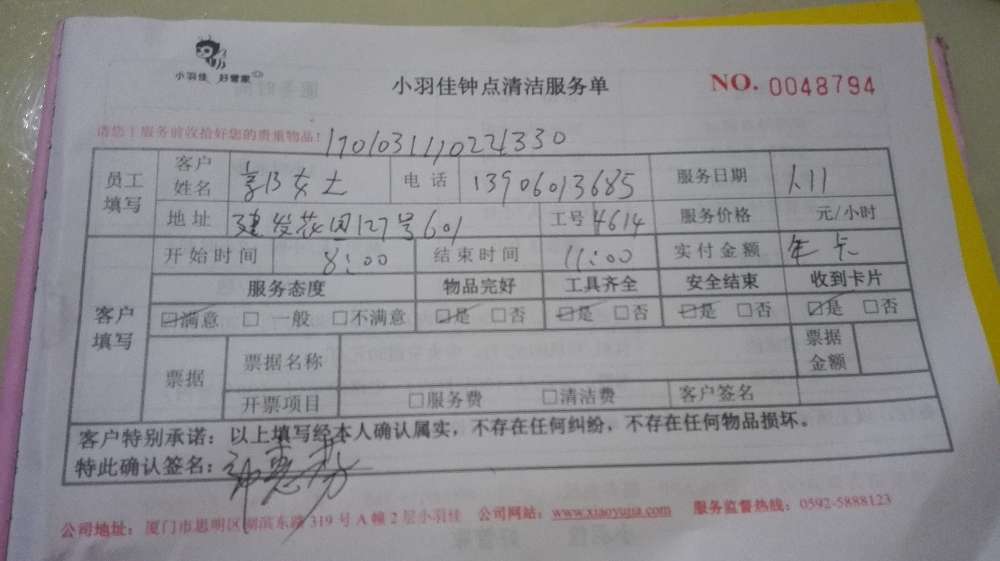 小羽佳 好管家
小羽佳钟点清洁服务单
NO. 0048794
请您于服务前收拾好您的贵重物品!
员工填写 客户姓名 郭女士 电话 13906013685 服务日期 1.11
地址 建发花园127号601 工号 4614 服务价格 元/小时
客户填写 开始时间 8:00 结束时间 11:00 实付金额 年卡
服务态度 物品完好 工具齐全 安全结束 收到卡片
☑满意 □一般 □不满意 ☑是 □否 ☑是 □否 ☑是 □否 ☑是 □否
票据 票据名称 票据金额
开票项目 □服务费 □清洁费 客户签名
客户特别承诺:以上填写经本人确认属实,不存在任何纠纷,不存在任何物品损坏。
特此确认签名:
公司地址:厦门市思明区湖滨东路319号A幢2层小羽佳 公司网站:www.xiaoyujia.com 服务监督热线:0592-5888123